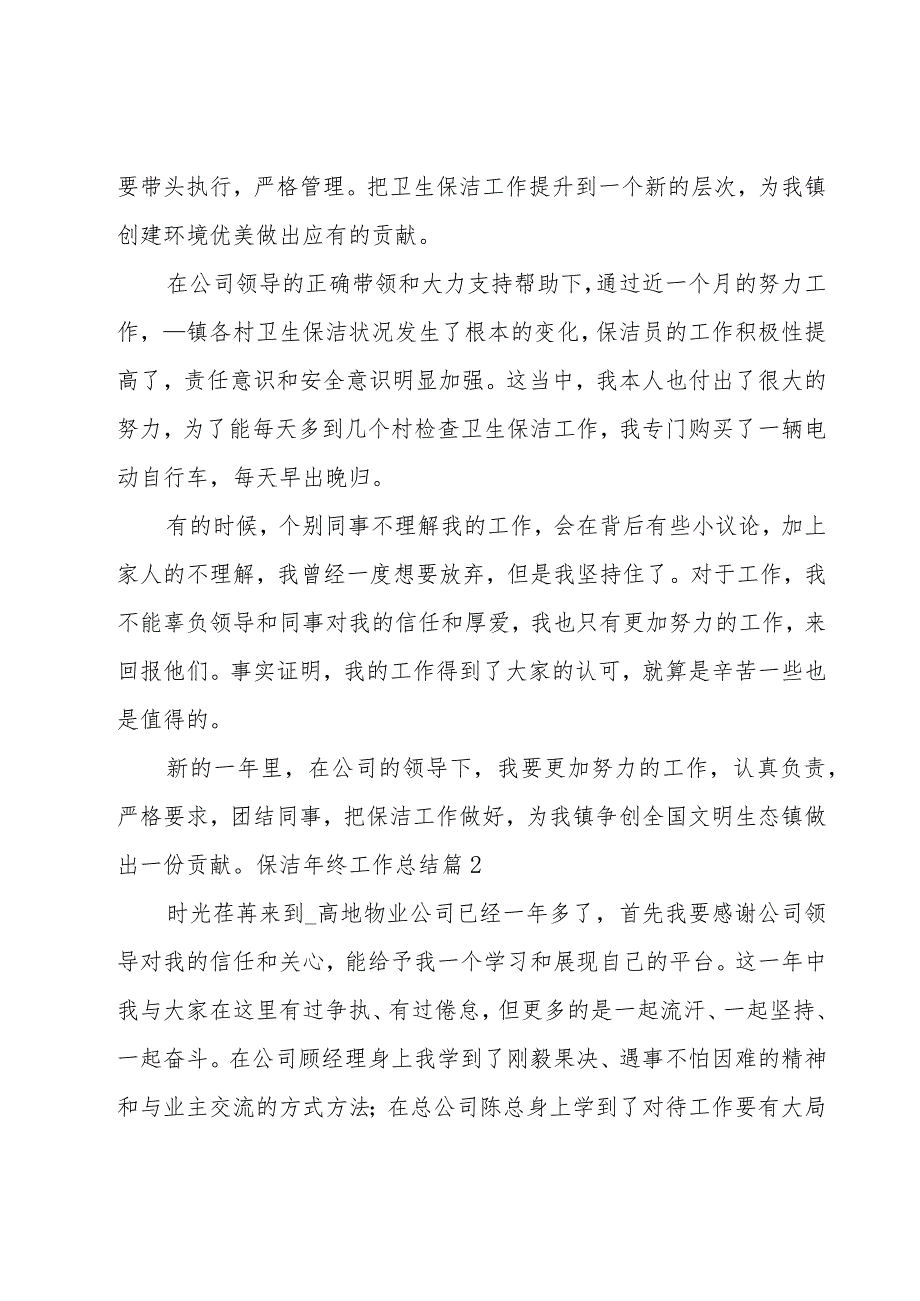 要带头执行，严格管理。把卫生保洁工作提升到一个新的层次，为我镇
创建环境优美做出应有的贡献。
在公司领导的正确带领和大力支持帮助下，通过近一个月的努力工
作，—镇各村卫生保洁状况发生了根本的变化，保洁员的工作积极性提
高了，责任意识和安全意识明显加强。这当中，我本人也付出了很大的
努力，为了能每天多到几个村检查卫生保洁工作，我专门购买了一辆电
动自行车，每天早出晚归。
有的时候，个别同事不理解我的工作，会在背后有些小议论，加上
家人的不理解，我曾经一度想要放弃，但是我坚持住了。对于工作，我
不能辜负领导和同事对我的信任和厚爱，我也只有更加努力的工作，来
回报他们。事实证明，我的工作得到了大家的认可，就算是辛苦一些也
是值得的。
新的一年里，在公司的领导下，我要更加努力的工作，认真负责，
严格要求，团结同事，把保洁工作做好，为我镇争创全国文明生态镇做
出一份贡献。保洁年终工作总结篇2
时光荏苒来到_高地物业公司已经一年多了，首先我要感谢公司领
导对我的信任和关心，能给予我一个学习和展现自己的平台。这一年中
我与大家在这里有过争执、有过倦怠，但更多的是一起流汗、一起坚持、
一起奋斗。在公司顾经理身上我学到了刚毅果决、遇事不怕因难的精神
和与业主交流的方式方法；在总公司陈总身上学到了对待工作要有大局